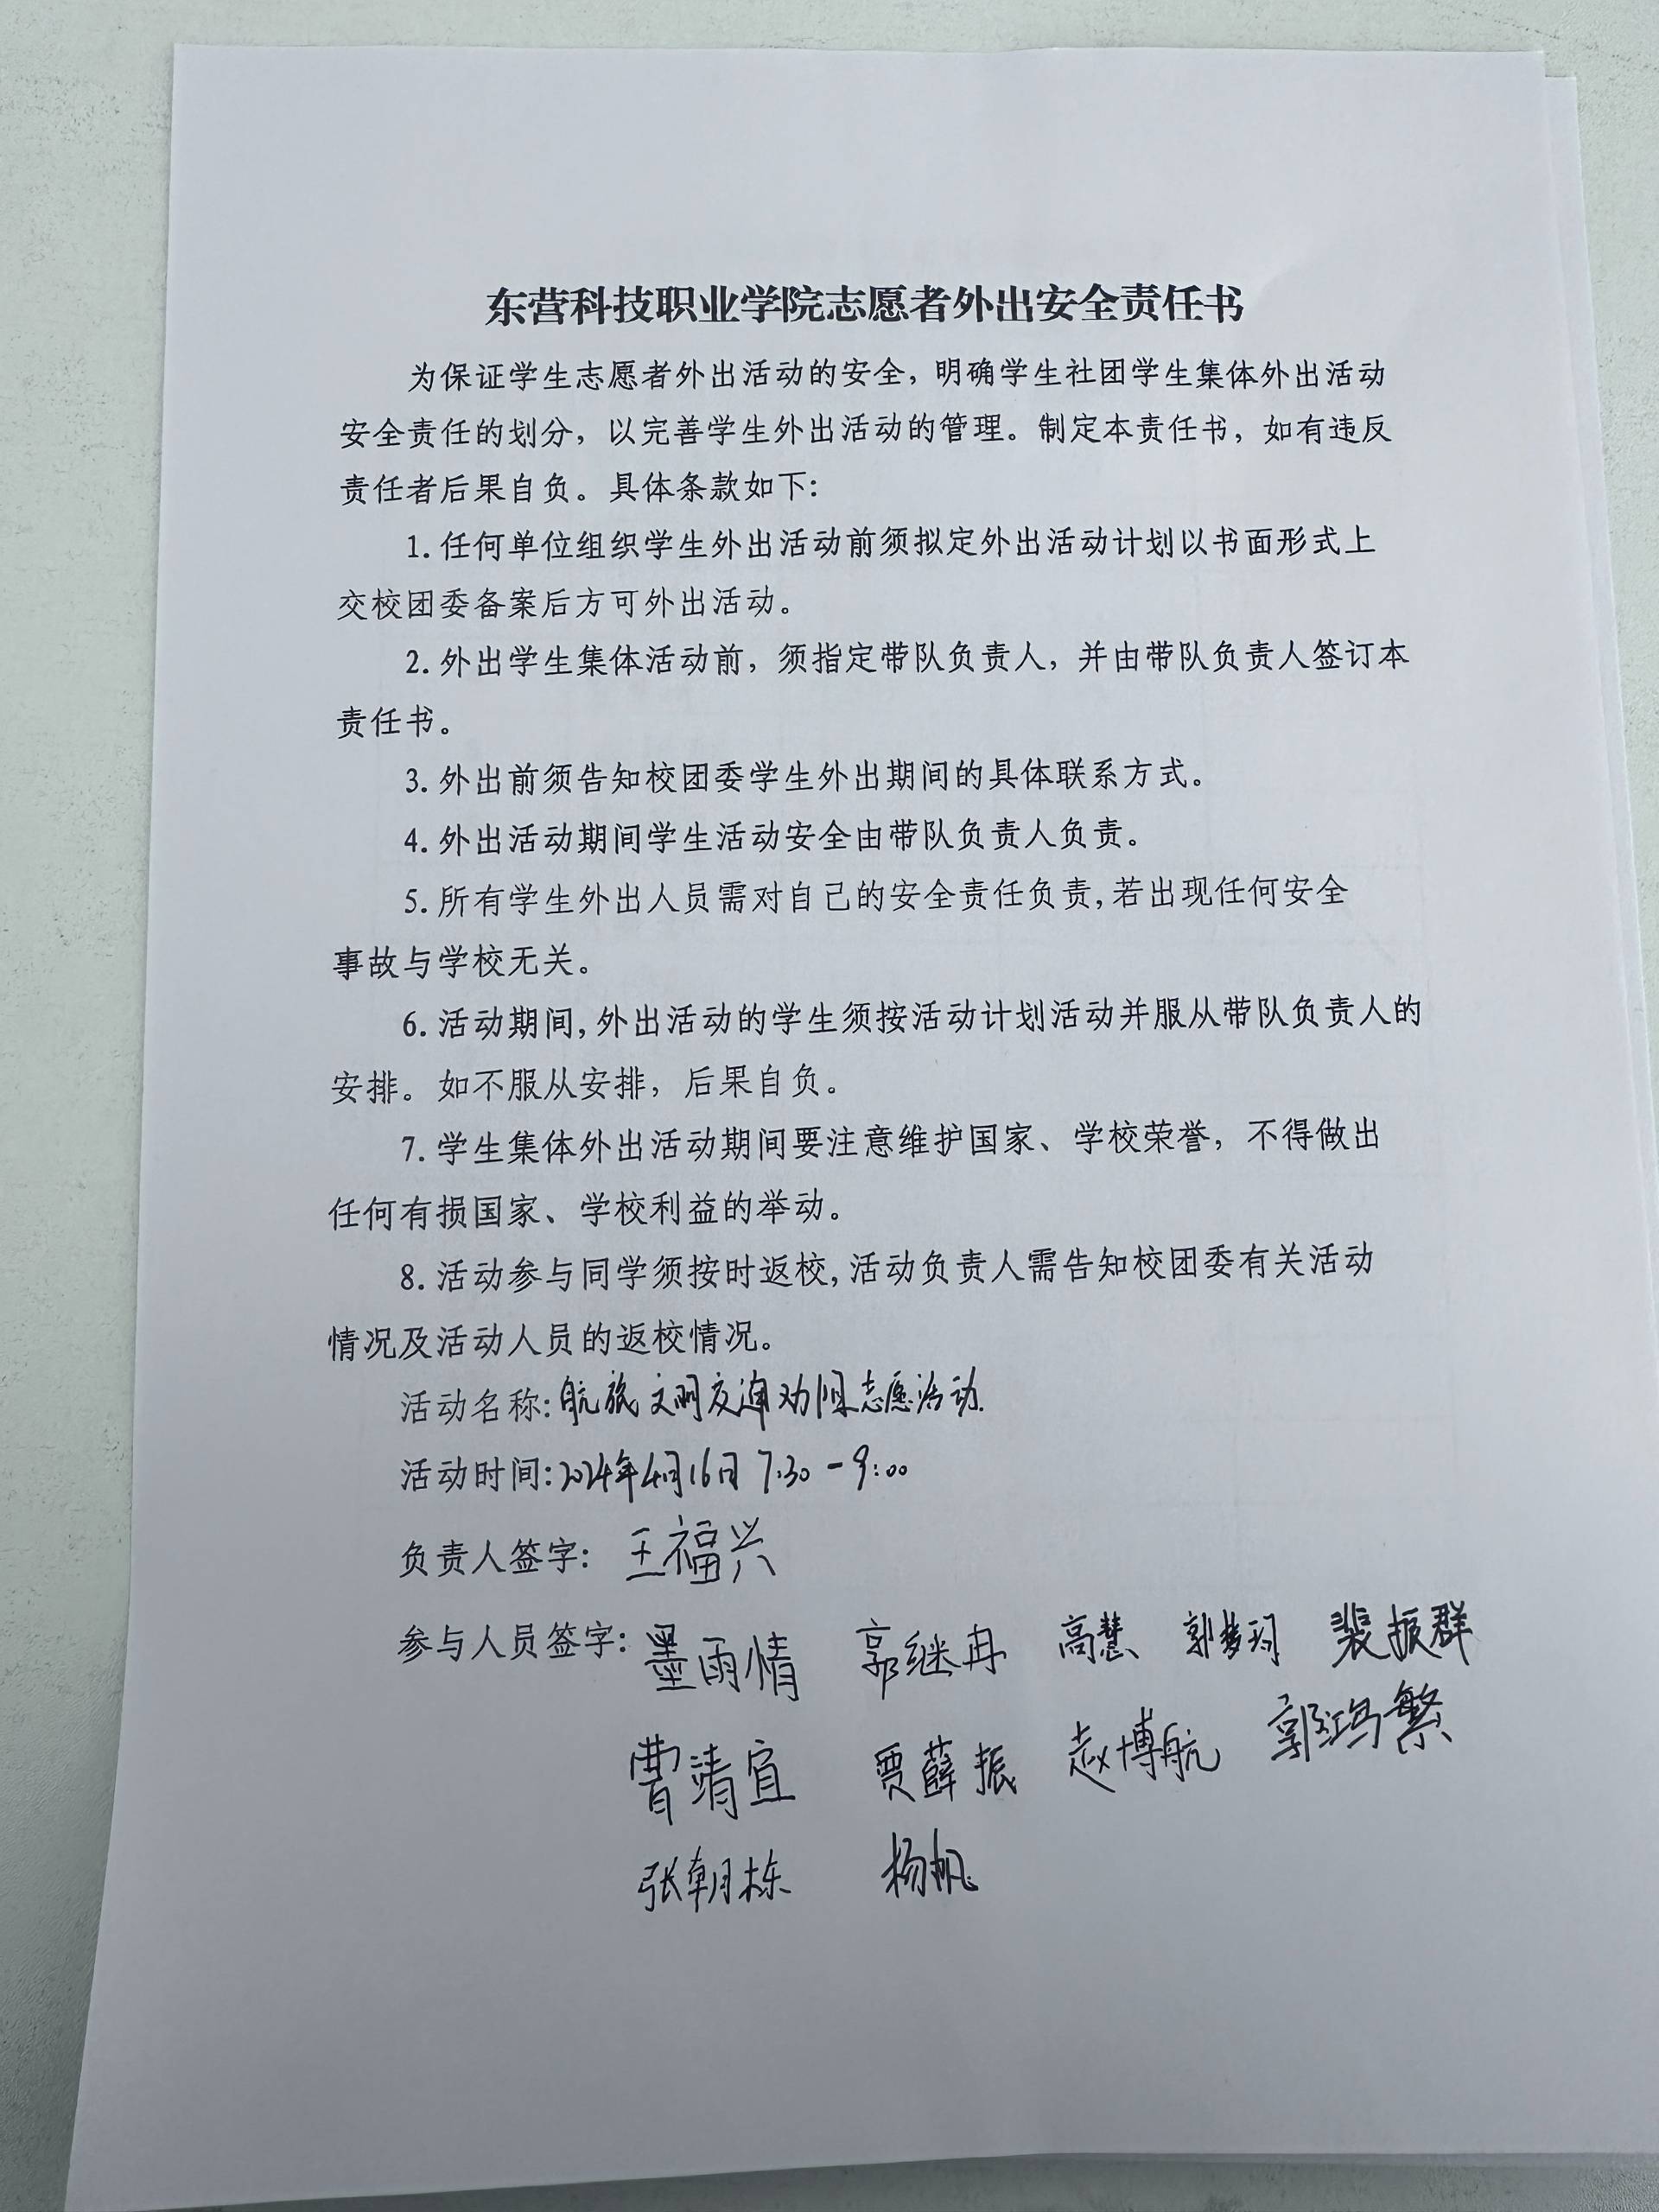 东营科技职业学院志愿者外出安全责任书
为保证学生志愿者外出活动的安全，明确学生社团学生集体外出活动
安全责任的划分，以完善学生外出活动的管理。制定本责任书，如有违反
责任者后果自负。具体条款如下：
1.任何单位组织学生外出活动前须拟定外出活动计划以书面形式上
交校团委备案后方可外出活动。
2.外出学生集体活动前，须指定带队负责人，并由带队负责人签订本
责任书。
3.外出前须告知校团委学生外出期间的具体联系方式。
4.外出活动期间学生活动安全由带队负责人负责。
5.所有学生外出人员需对自己的安全责任负责,若出现任何安全
事故与学校无关。
6.活动期间,外出活动的学生须按活动计划活动并服从带队负责人的
安排。如不服从安排，后果自负。
7.学生集体外出活动期间要注意维护国家、学校荣誉，不得做出
任何有损国家、学校利益的举动。
8.活动参与同学须按时返校,活动负责人需告知校团委有关活动
情况及活动人员的返校情况。
活动名称:航旅文明交通劝导志愿活动
活动时间:2024年4月16日 7:30-9:00
负责人签字: 王福兴
参与人员签字: 墨雨情 郭继冉 高慧 郭梦珂 裴振群
曹靖宜 贾薛振 赵博航 郭鸿繁
张朝栋 杨帆